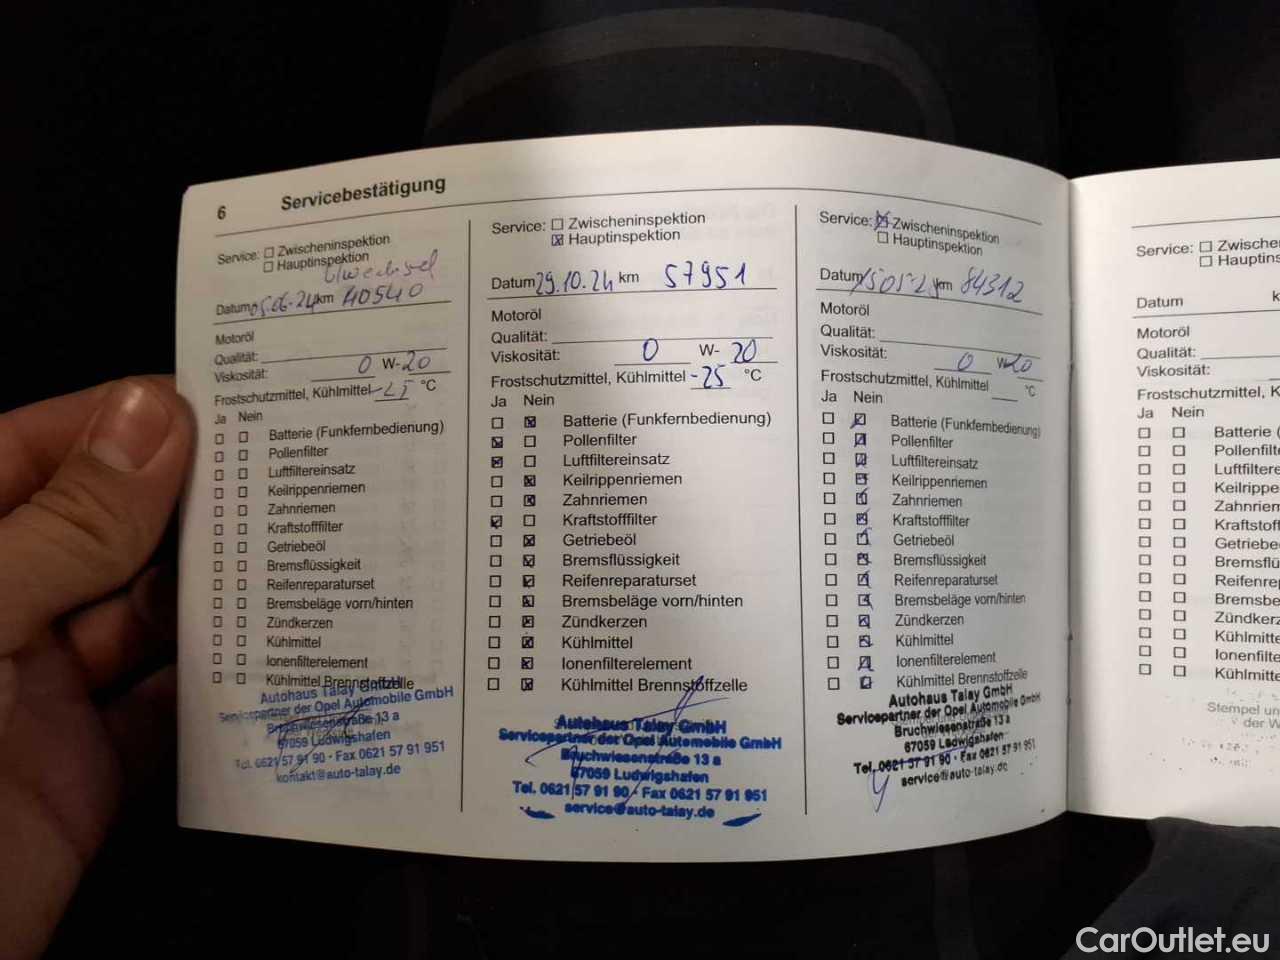 6 Servicebestätigung
Service: ☐ Zwischeninspektion
☐ Hauptinspektion
Ölwechsel
Datum 05.06.24 km 40540
Motoröl
Qualität:
Viskosität: 0 W-20
Frostschutzmittel, Kühlmittel -25 °C
Ja Nein
☐ ☐ Batterie (Funkfernbedienung)
☐ ☐ Pollenfilter
☐ ☐ Luftfiltereinsatz
☐ ☐ Keilrippenriemen
☐ ☐ Zahnriemen
☐ ☐ Kraftstofffilter
☐ ☐ Getriebeöl
☐ ☐ Bremsflüssigkeit
☐ ☐ Reifenreparaturset
☐ ☐ Bremsbeläge vorn/hinten
☐ ☐ Zündkerzen
☐ ☐ Kühlmittel
☐ ☐ Ionenfilterelement
☐ ☐ Kühlmittel Brennstoffzelle
Autohaus Talay GmbH
Servicepartner der Opel Automobile GmbH
Bruchwiesenstraße 13 a
67059 Ludwigshafen
Tel. 0621 57 91 90 - Fax 0621 57 91 951
kontakt@auto-talay.de
Service: ☐ Zwischeninspektion
☒ Hauptinspektion
Datum 29.10.24 km 57951
Motoröl
Qualität:
Viskosität: 0 W- 20
Frostschutzmittel, Kühlmittel -25 °C
Ja Nein
☐ ☒ Batterie (Funkfernbedienung)
☒ ☐ Pollenfilter
☒ ☐ Luftfiltereinsatz
☐ ☒ Keilrippenriemen
☐ ☒ Zahnriemen
☒ ☐ Kraftstofffilter
☐ ☒ Getriebeöl
☐ ☒ Bremsflüssigkeit
☐ ☒ Reifenreparaturset
☐ ☒ Bremsbeläge vorn/hinten
☐ ☒ Zündkerzen
☐ ☒ Kühlmittel
☐ ☒ Ionenfilterelement
☐ ☒ Kühlmittel Brennstoffzelle
Autohaus Talay GmbH
Servicepartner der Opel Automobile GmbH
Bruchwiesenstraße 13 a
67059 Ludwigshafen
Tel. 0621 57 91 90 - Fax 0621 57 91 951
service@auto-talay.de
Service: ☒ Zwischeninspektion
☐ Hauptinspektion
Datum 15.05.25 km 84312
Motoröl
Qualität:
Viskosität: 0 W-20
Frostschutzmittel, Kühlmittel °C
Ja Nein
☐ ☒ Batterie (Funkfernbedienung)
☐ ☒ Pollenfilter
☐ ☒ Luftfiltereinsatz
☐ ☒ Keilrippenriemen
☐ ☒ Zahnriemen
☐ ☒ Kraftstofffilter
☐ ☒ Getriebeöl
☐ ☒ Bremsflüssigkeit
☐ ☒ Reifenreparaturset
☐ ☒ Bremsbeläge vorn/hinten
☐ ☒ Zündkerzen
☐ ☒ Kühlmittel
☐ ☒ Ionenfilterelement
☐ ☒ Kühlmittel Brennstoffzelle
Autohaus Talay GmbH
Servicepartner der Opel Automobile GmbH
Bruchwiesenstraße 13 a
67059 Ludwigshafen
Tel. 0621 57 91 90 - Fax 0621 57 91 951
service@auto-talay.de
Service: ☐ Zwischen
☐ Hauptins
Datum k
Motoröl
Qualität:
Viskosität:
Frostschutzmittel, K
Ja Nein
☐ ☐ Batterie (
☐ ☐ Pollenfil
☐ ☐ Luftfilter
☐ ☐ Keilrippe
☐ ☐ Zahnriem
☐ ☐ Kraftstof
☐ ☐ Getriebe
☐ ☐ Bremsflü
☐ ☐ Reifenre
☐ ☐ Bremsbe
☐ ☐ Zündkerz
☐ ☐ Kühlmitte
☐ ☐ Ionenfilte
☐ ☐ Kühlmitte
Stempel un
der W
CarOutlet.eu